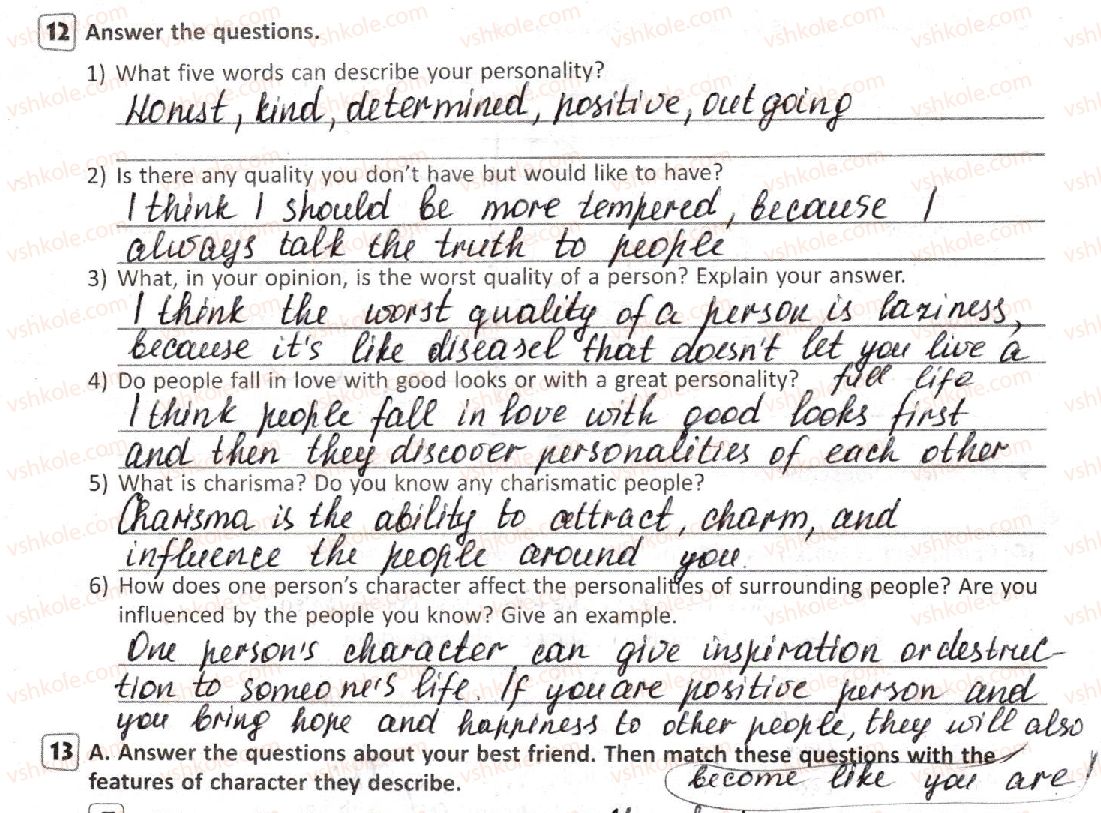 12 Answer the questions.
1) What five words can describe your personality?
Honest, kind, determined, positive, outgoing
2) Is there any quality you don't have but would like to have?
I think I should be more tempered, because I
always talk the truth to people
3) What, in your opinion, is the worst quality of a person? Explain your answer.
I think the worst quality of a person is laziness,
because it's like diseasel that doesn't let you live a
full life
4) Do people fall in love with good looks or with a great personality?
I think people fall in love with good looks first
and then they discover personalities of each other
5) What is charisma? Do you know any charismatic people?
Charisma is the ability to attract, charm, and
influence the people around you.
6) How does one person's character affect the personalities of surrounding people? Are you
influenced by the people you know? Give an example.
One person's character can give inspiration or destruc-
tion to someone's life. If you are positive person and
you bring hope and happiness to other people, they will also
become like you are!
13 A. Answer the questions about your best friend. Then match these questions with the
features of character they describe.
vshkole.com